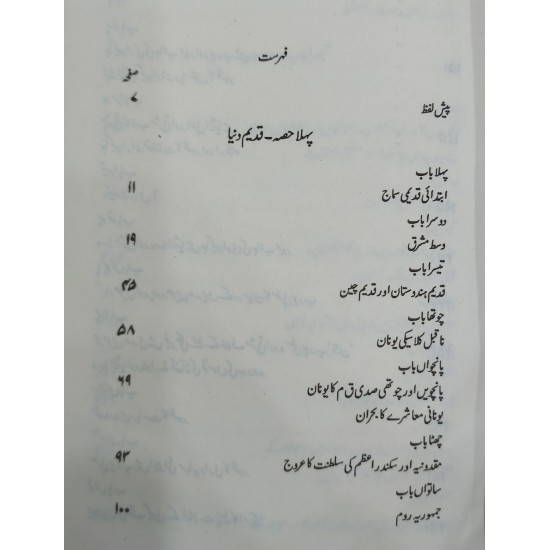 فہرست
صفحہ
پیش لفظ ۷
پہلا حصہ - قدیم دنیا
پہلا باب
ابتدائی قدیمی سماج ۱۱
دوسرا باب
وسط مشرق ۱۹
تیسرا باب
قدیم ہندوستان اور قدیم چین ۴۵
چوتھا باب
ماقبل کلاسیکی یونان ۵۸
پانچواں باب
پانچویں اور چوتھی صدی ق م کا یونان ۶۹
یونانی معاشرے کا بحران
چھٹا باب
مقدونیہ اور سکندر اعظم کی سلطنت کا عروج ۹۳
ساتواں باب
جمہوریہ روم ۱۰۰